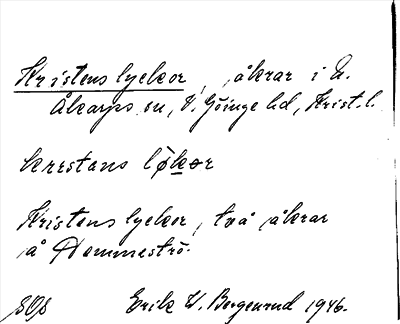 Kristens lyckor, åkrar i N.
Åkarps sn, V. Göinge hd, Krist. l.
krestans løkər
Kristens lyckor, två åkrar
å Dammeströ.
Erik W. Bergenrud 1946.